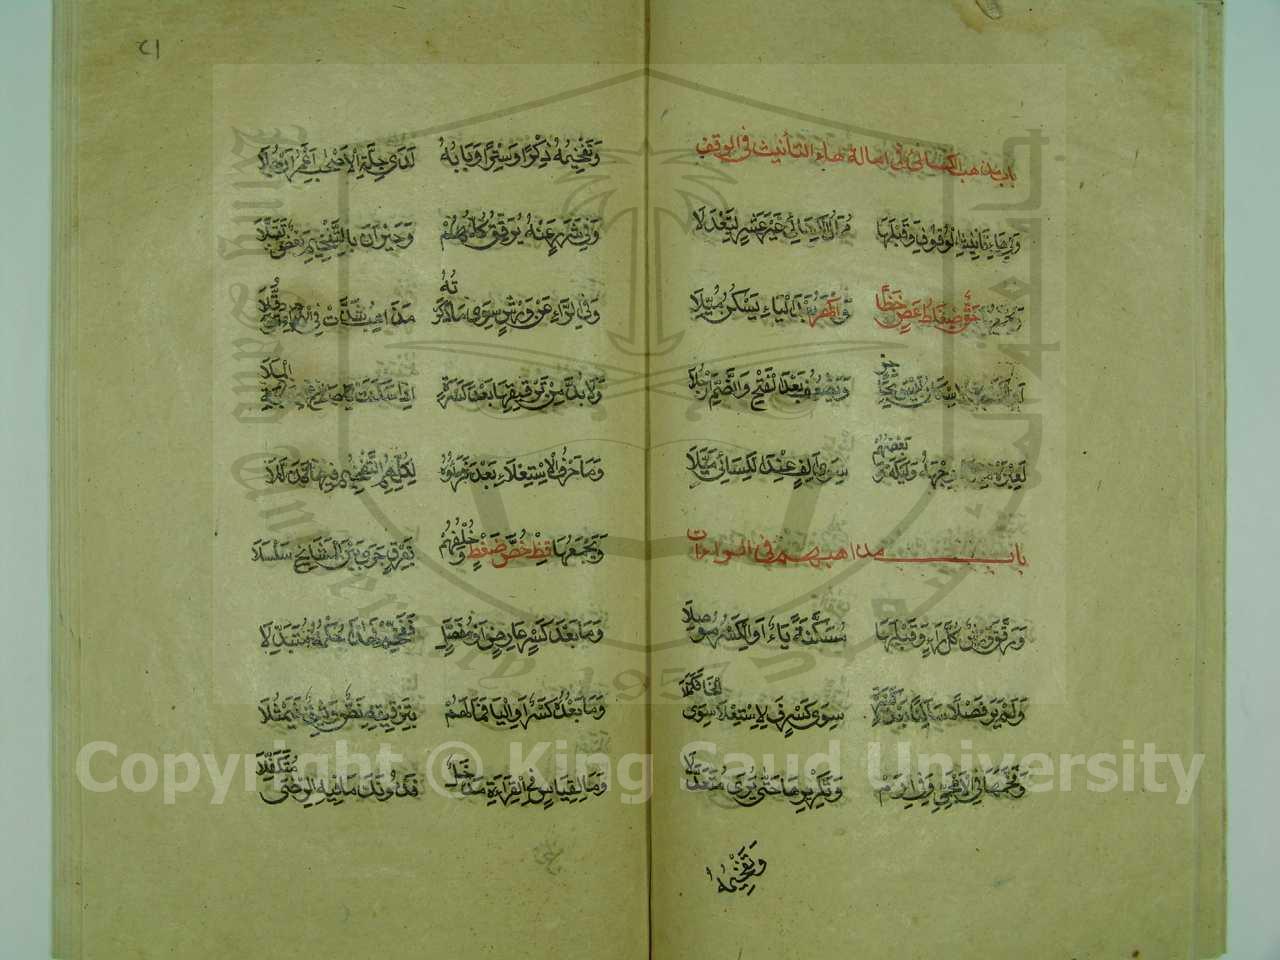 باب مذهب الكسائي في امالة هاء التأنيث في الوقف
وَفِي هَاءِ تَأْنِيثِ الْوُقُوفِ وَقَبْلَهَا مُمَالُ الْكِسَائِي غَيْرَ عَشْرٍ لِيَعْدِلَا
وَيَجْمَعُهَا حَقٌّ ضِغَاطُ عَصٍ خَظَا وَأَكْهَرُ بَعْدَ الْيَاءِ يَسْكُنُ مُيِّلَا
أَوِ الْكَسْرِ وَالْإِسْكَانُ لَيْسَ بِحَاجِزٍ وَيَضْعُفُ بَعْدَ الْفَتْحِ وَالضَّمِّ أَرْجُلَا
لَعِبْرَهْ مِائَهْ وِجْهَهْ وَلَيْكَهْ وَبَعْضُهُمْ سِوَى أَلِفٍ عِنْدَ الْكِسَائِي مَيَّلَا
باب مذاهبهم في الراءات
وَرَقَّقَ وَرْشٌ كُلَّ رَاءٍ وَقَبْلَهَا مُسَكَّنَةً يَاءٌ أَوِ الْكَسْرُ مُوصَلَا
وَلَمْ يَرَ فَصْلًا سَاكِنًا بَعْدَ كَسْرَةٍ سِوَى حَرْفِ الِاسْتِعْلَا سِوَى الْخَا فَكَمَّلَا
وَفَخَّمَهَا فِي الْأَعْجَمِيِّ وَفِي إِرَمْ وَتَكْرِيرِهَا حَتَّى يُرَى مُتَعَدِّلَا
وَتَفْخِيمُهُ
٢١
وَتَفْخِيمُهُ ذِكْرًا وَسِتْرًا وَبَابُهُ لَدَى جِلَّةِ الْأَصْحَابِ أَعْمَرُ أَرْحُلَا
وَفِي شَرَرٍ عَنْهُ يُرَقِّقُ كُلُّهُمْ وَحَيْرَانَ بِالتَّفْخِيمِ بَعْضٌ تَقَبَّلَا
وَفِي الرَّاءِ عَنْ وَرْشٍ سِوَى مَا ذَكَرْتُهُ مَذَاهِبُ شَذَّتْ فِي الْأَدَاءِ تَوَقُّلَا
وَلَا بُدَّ مِنْ تَرْقِيقِهَا بَعْدَ كَسْرَةٍ إِذَا سَكَنَتْ يَا صَاحِ لِلسَّبْعَةِ الْمَلَا
وَمَا حَرْفُ الِاسْتِعْلَاءِ بَعْدُ فَرَاؤُهُ لِكُلِّهِمُ التَّفْخِيمُ فِيهَا تَذَلَّلَا
وَيَجْمَعُهَا قِظْ خُصَّ ضَغْطٍ وَخُلْفُهُمْ بِفِرْقٍ جَرَى بَيْنَ الْمَشَايِخِ سَلْسَلَا
وَمَا بَعْدَ كَسْرٍ عَارِضٍ أَوْ مُفَصَّلٍ فَفَخِّمْ فَهَذَا حُكْمُهُ مُتَبَذِّلَا
وَمَا بَعْدَهُ كَسْرٌ أَوِ الْيَا فَمَا لَهُمْ بِتَرْقِيقِهِ نَصٌّ وَثِيقٌ فَيَمْثُلَا
وَمَا لِقِيَاسٍ فِي الْقِرَاءَةِ مَدْخَلٌ فَدُونَكَ مَا فِيهِ الرِّضَى مُتَكَفِّلَا
Copyright © King Saud University
1957